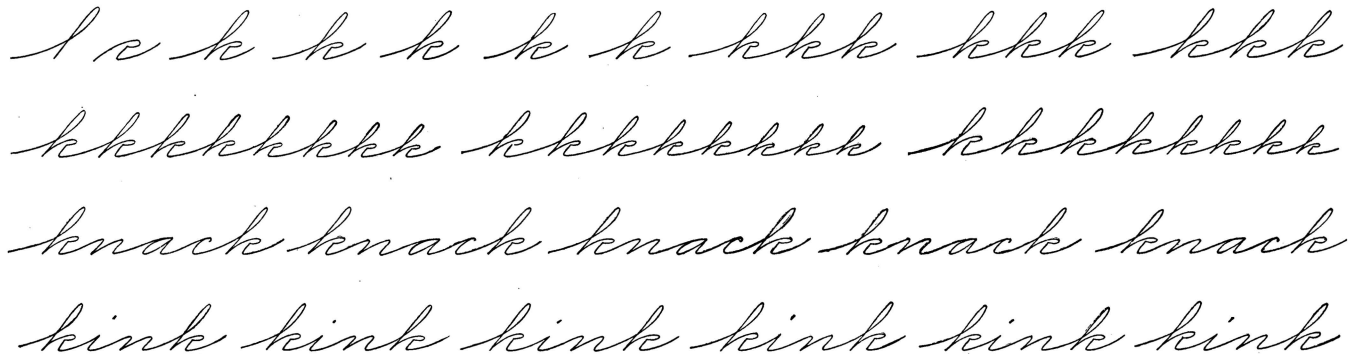 l k k k k k kkk kkk kkk
kkkkkkkk kkkkkkkk kkkkkkkk
knack knack knack knack knack
kink kink kink kink kink kink